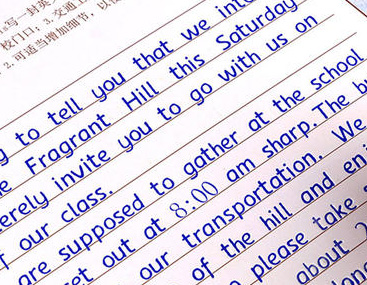 写一封英
校门口；3. 交通工
2. 可适当增加细节，以
to tell you that we
Fragrant Hill this Saturday
invite you to go with us on
our class.
are supposed to gather at the school
out at 8:00 am sharp. The
our transportation. We
of the hill and
please take
about
long